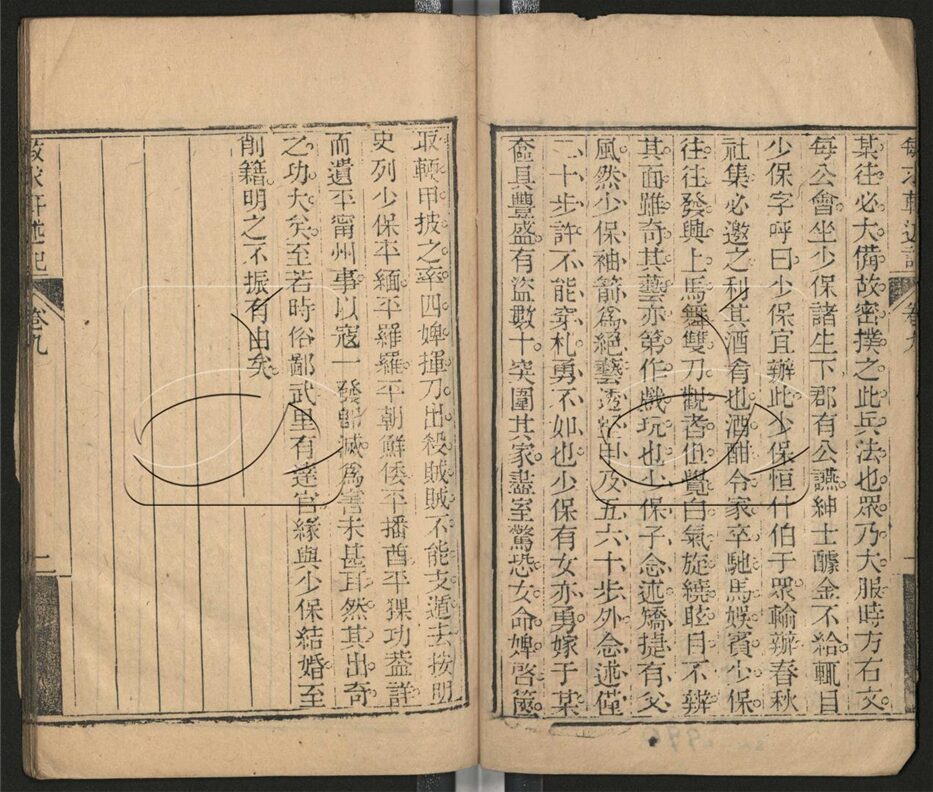 某往必大備故密撲之此兵法也眾乃大服時方右文
每公會坐少保諸生下郡有公讌紳士醵金不給輒目
少保字呼曰少保宜辦此少保恒什伯于眾輸辦春秋
社集必邀之利其酒肴也酒酣令家卒馳馬娛賓少保
往往發興上馬舞雙刀觀者但覺白氣旋繞眩目不辨
其面雖奇其藝亦第作戲玩也少保子念述矯捷有父
風然少保袖箭爲絕藝透堅甲及五六十步外念述僅
二十步許不能穿札勇不如也少保有女亦勇嫁于某
奩具豐盛有盜數十突圍其家盡室驚恐女命婢啓篋
取輕甲披之率四婢揮刀出殺賊賊不能支遁去按明
史列少保平緬平羅羅平朝鮮倭平播酋平猓功葢詳
而遺平甯州事以寇一發卽滅爲害未甚耳然其出奇
之功大矣至若時俗鄙武里有達官緣與少保結婚至
削籍明之不振有由矣
卷九
二